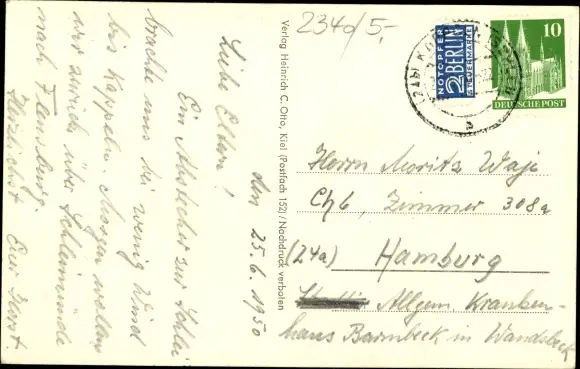 234d/5,-
den 25.6.1950
Liebe Eltern!
Ein Abstecher zur Schlei
brachte uns bei wenig Wind
bis Kappeln. Morgen wollen
wir zurück über Schleimünde
nach Flensburg.
Herzlichst Euer Horst.
Verlag Heinrich C. Otto, Kiel (Postfach 152) / Nachdruck verboten
NOTOPFER
2 BERLIN
STEUERMARKE
10
DEUTSCHE POST
(24b)
b
Herrn Moritz Waje
Ch6, Zimmer 308a
(24a) Hamburg
Allgem. Kranken-
haus Barmbeck in Wandsbek